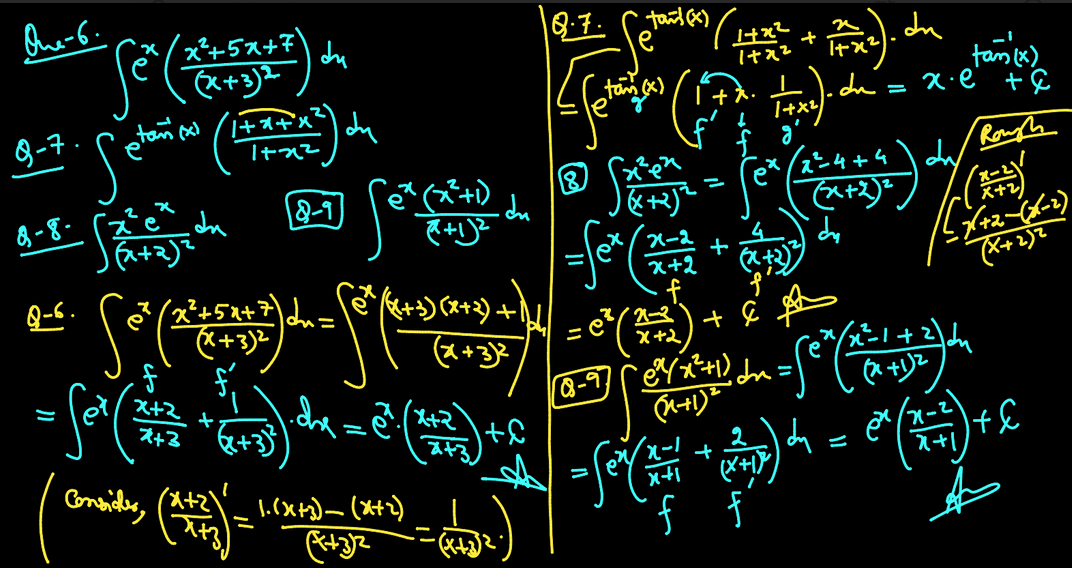 Que-6. ∫e^x ((x²+5x+7)/(x+3)²) dx
Q-7. ∫e^(tan⁻¹(x)) ((1+x+x²)/(1+x²)) dx
Q-8. ∫(x² e^x)/(x+2)² dx
Q-9 ∫(e^x (x²+1))/(x+1)² dx
Q-6. ∫e^x ((x²+5x+7)/(x+3)²) dx = ∫e^x (((x+3)(x+2)+1)/(x+3)²) dx
f f'
= ∫e^x ((x+2)/(x+3) + 1/(x+3)²).dx = e^x.((x+2)/(x+3)) + C
(Consider, ((x+2)/(x+3))' = (1.(x+3) – (x+2))/(x+3)² = 1/(x+3)².)
Q.7. ∫e^(tan⁻¹(x)) ((1+x²)/(1+x²) + x/(1+x²)).dx
= ∫e^(tan⁻¹(x)) (1 + x. 1/(1+x²)).dx = x.e^(tan⁻¹(x)) + C
g f' f g'
8 ∫(x²e^x)/(x+2)² = ∫e^x ((x²-4+4)/(x+2)²) dx
= ∫e^x ((x-2)/(x+2) + 4/(x+2)²) dx
f f'
= e^x ((x-2)/(x+2)) + C
Rough
((x-2)/(x+2))'
= (x+2-(x-2))/(x+2)²
Q-9 ∫(e^x(x²+1))/(x+1)² dx = ∫e^x ((x²-1+2)/(x+1)²) dx
= ∫e^x ((x-1)/(x+1) + 2/(x+1)²) dx = e^x ((x-2)/(x+1)) + C
f f'